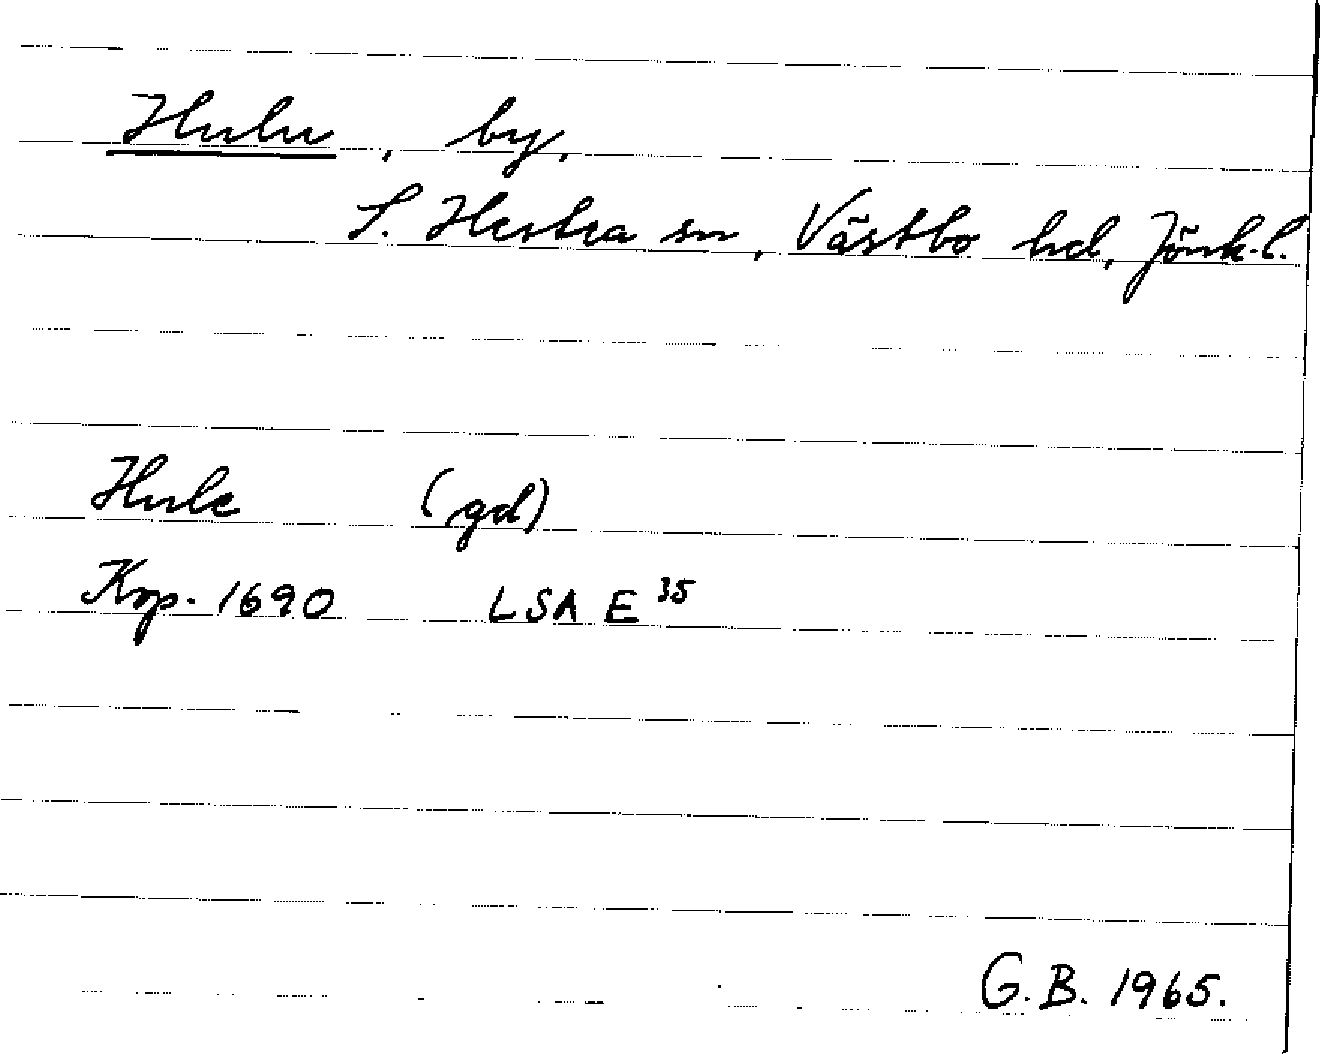 Hulu, by,
S. Hestra sn, Västbo hd, Jönk.l.
Hule (gd)
Kop. 1690 LSA E 35
G.B. 1965.